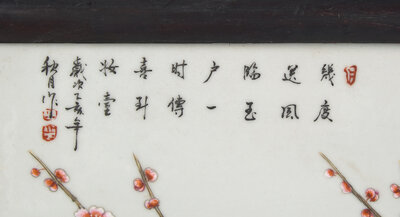 幾度
送風
臨玉
户一
时傳
喜到
妝臺
歲次丁亥年
秋月作